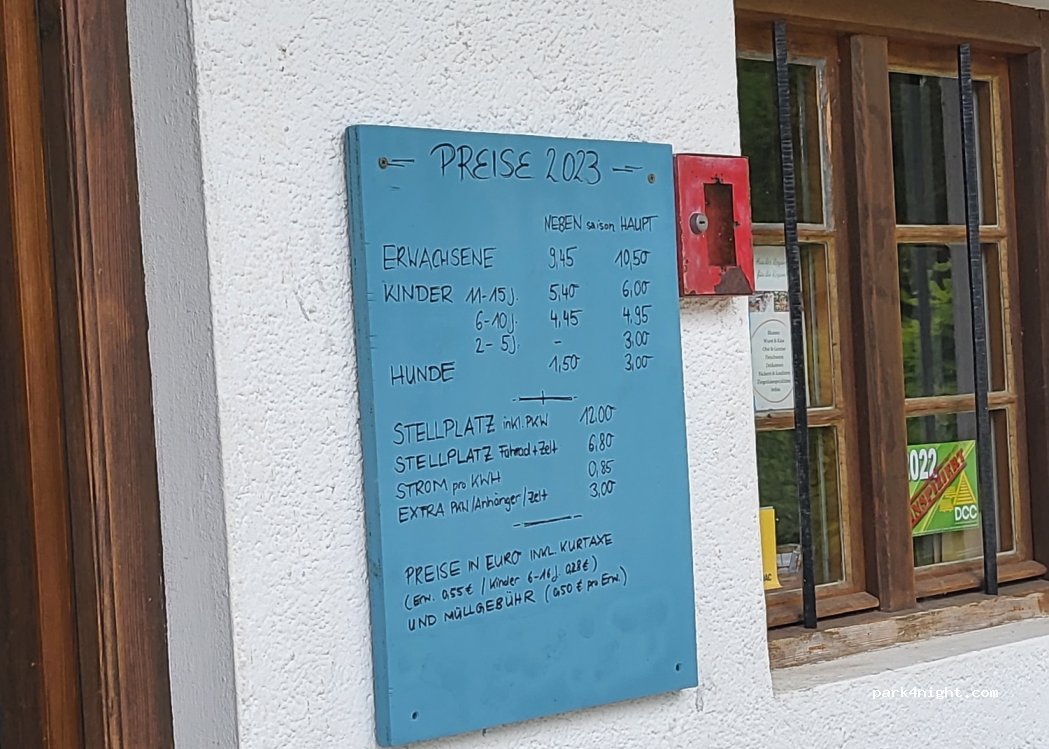 PREISE 2023
NEBEN saison HAUPT
ERWACHSENE 9,45 10,50
KINDER 11-15J. 5,40 6,00
6-10J. 4,45 4,95
2-5J. - 3,00
HUNDE 1,50 3,00
STELLPLATZ inkl. PKW 12,00
STELLPLATZ Fahrrad+Zelt 6,80
STROM pro KWH 0,85
EXTRA PKW/Anhänger/Zelt 3,00
PREISE IN EURO INKL. KURTAXE
(Erw. 0,55€ / Kinder 6-16J. 0,28€)
UND MÜLLGEBÜHR (0,50€ pro Erw.)
2022
INSPIZIERT
DCC
park4night.com